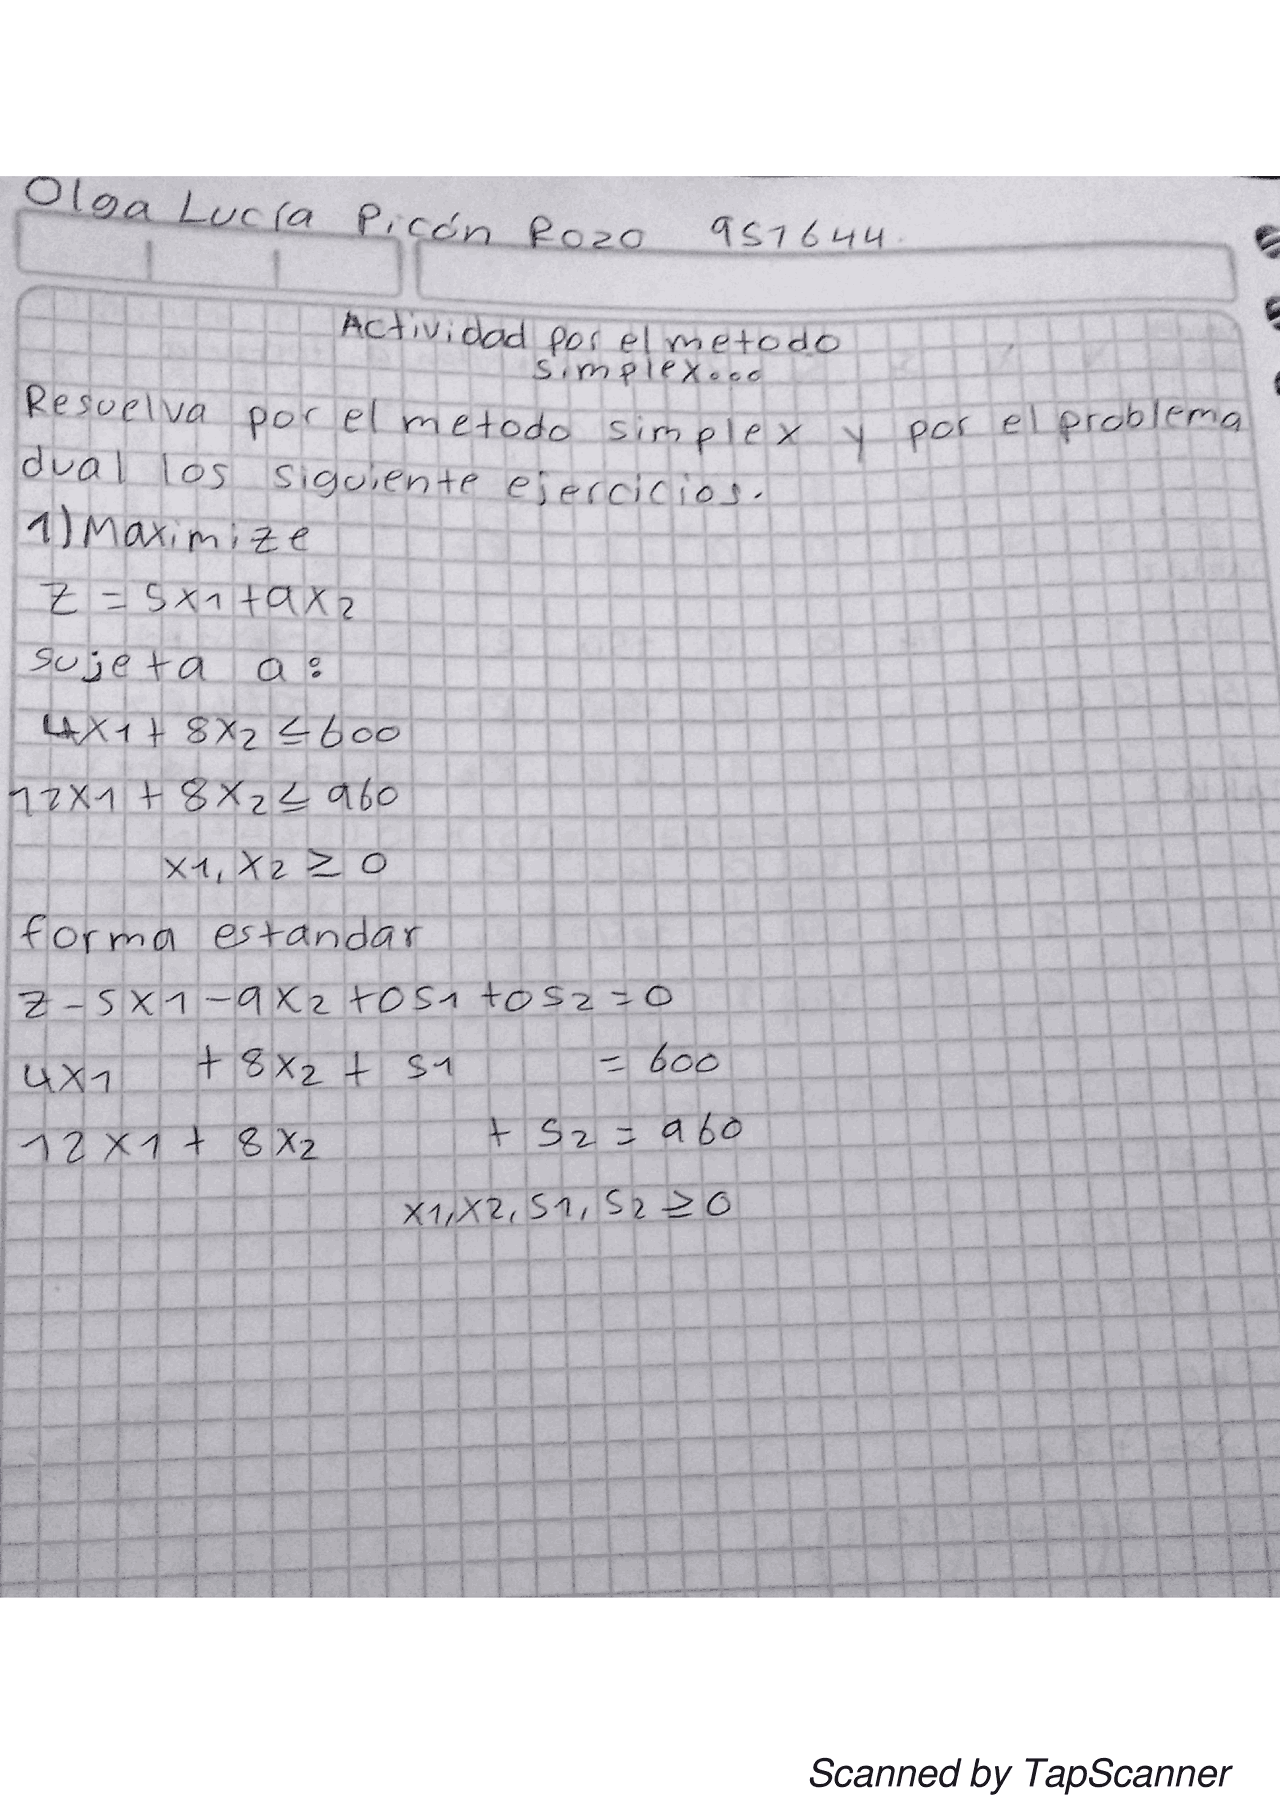 Olga Lucía Picón Rozo 951644.
Actividad por el metodo
simplex...
Resuelva por el metodo simplex y por el problema
dual los siguiente ejercicios.
1) Maximize
z = 5x1 + 9x2
sujeta a:
4x1 + 8x2 ≤ 600
12x1 + 8x2 ≤ 960
x1, x2 ≥ 0
forma estandar
z - 5x1 - 9x2 + 0s1 + 0s2 = 0
4x1 + 8x2 + s1 = 600
12x1 + 8x2 + s2 = 960
x1, x2, s1, s2 ≥ 0
Scanned by TapScanner